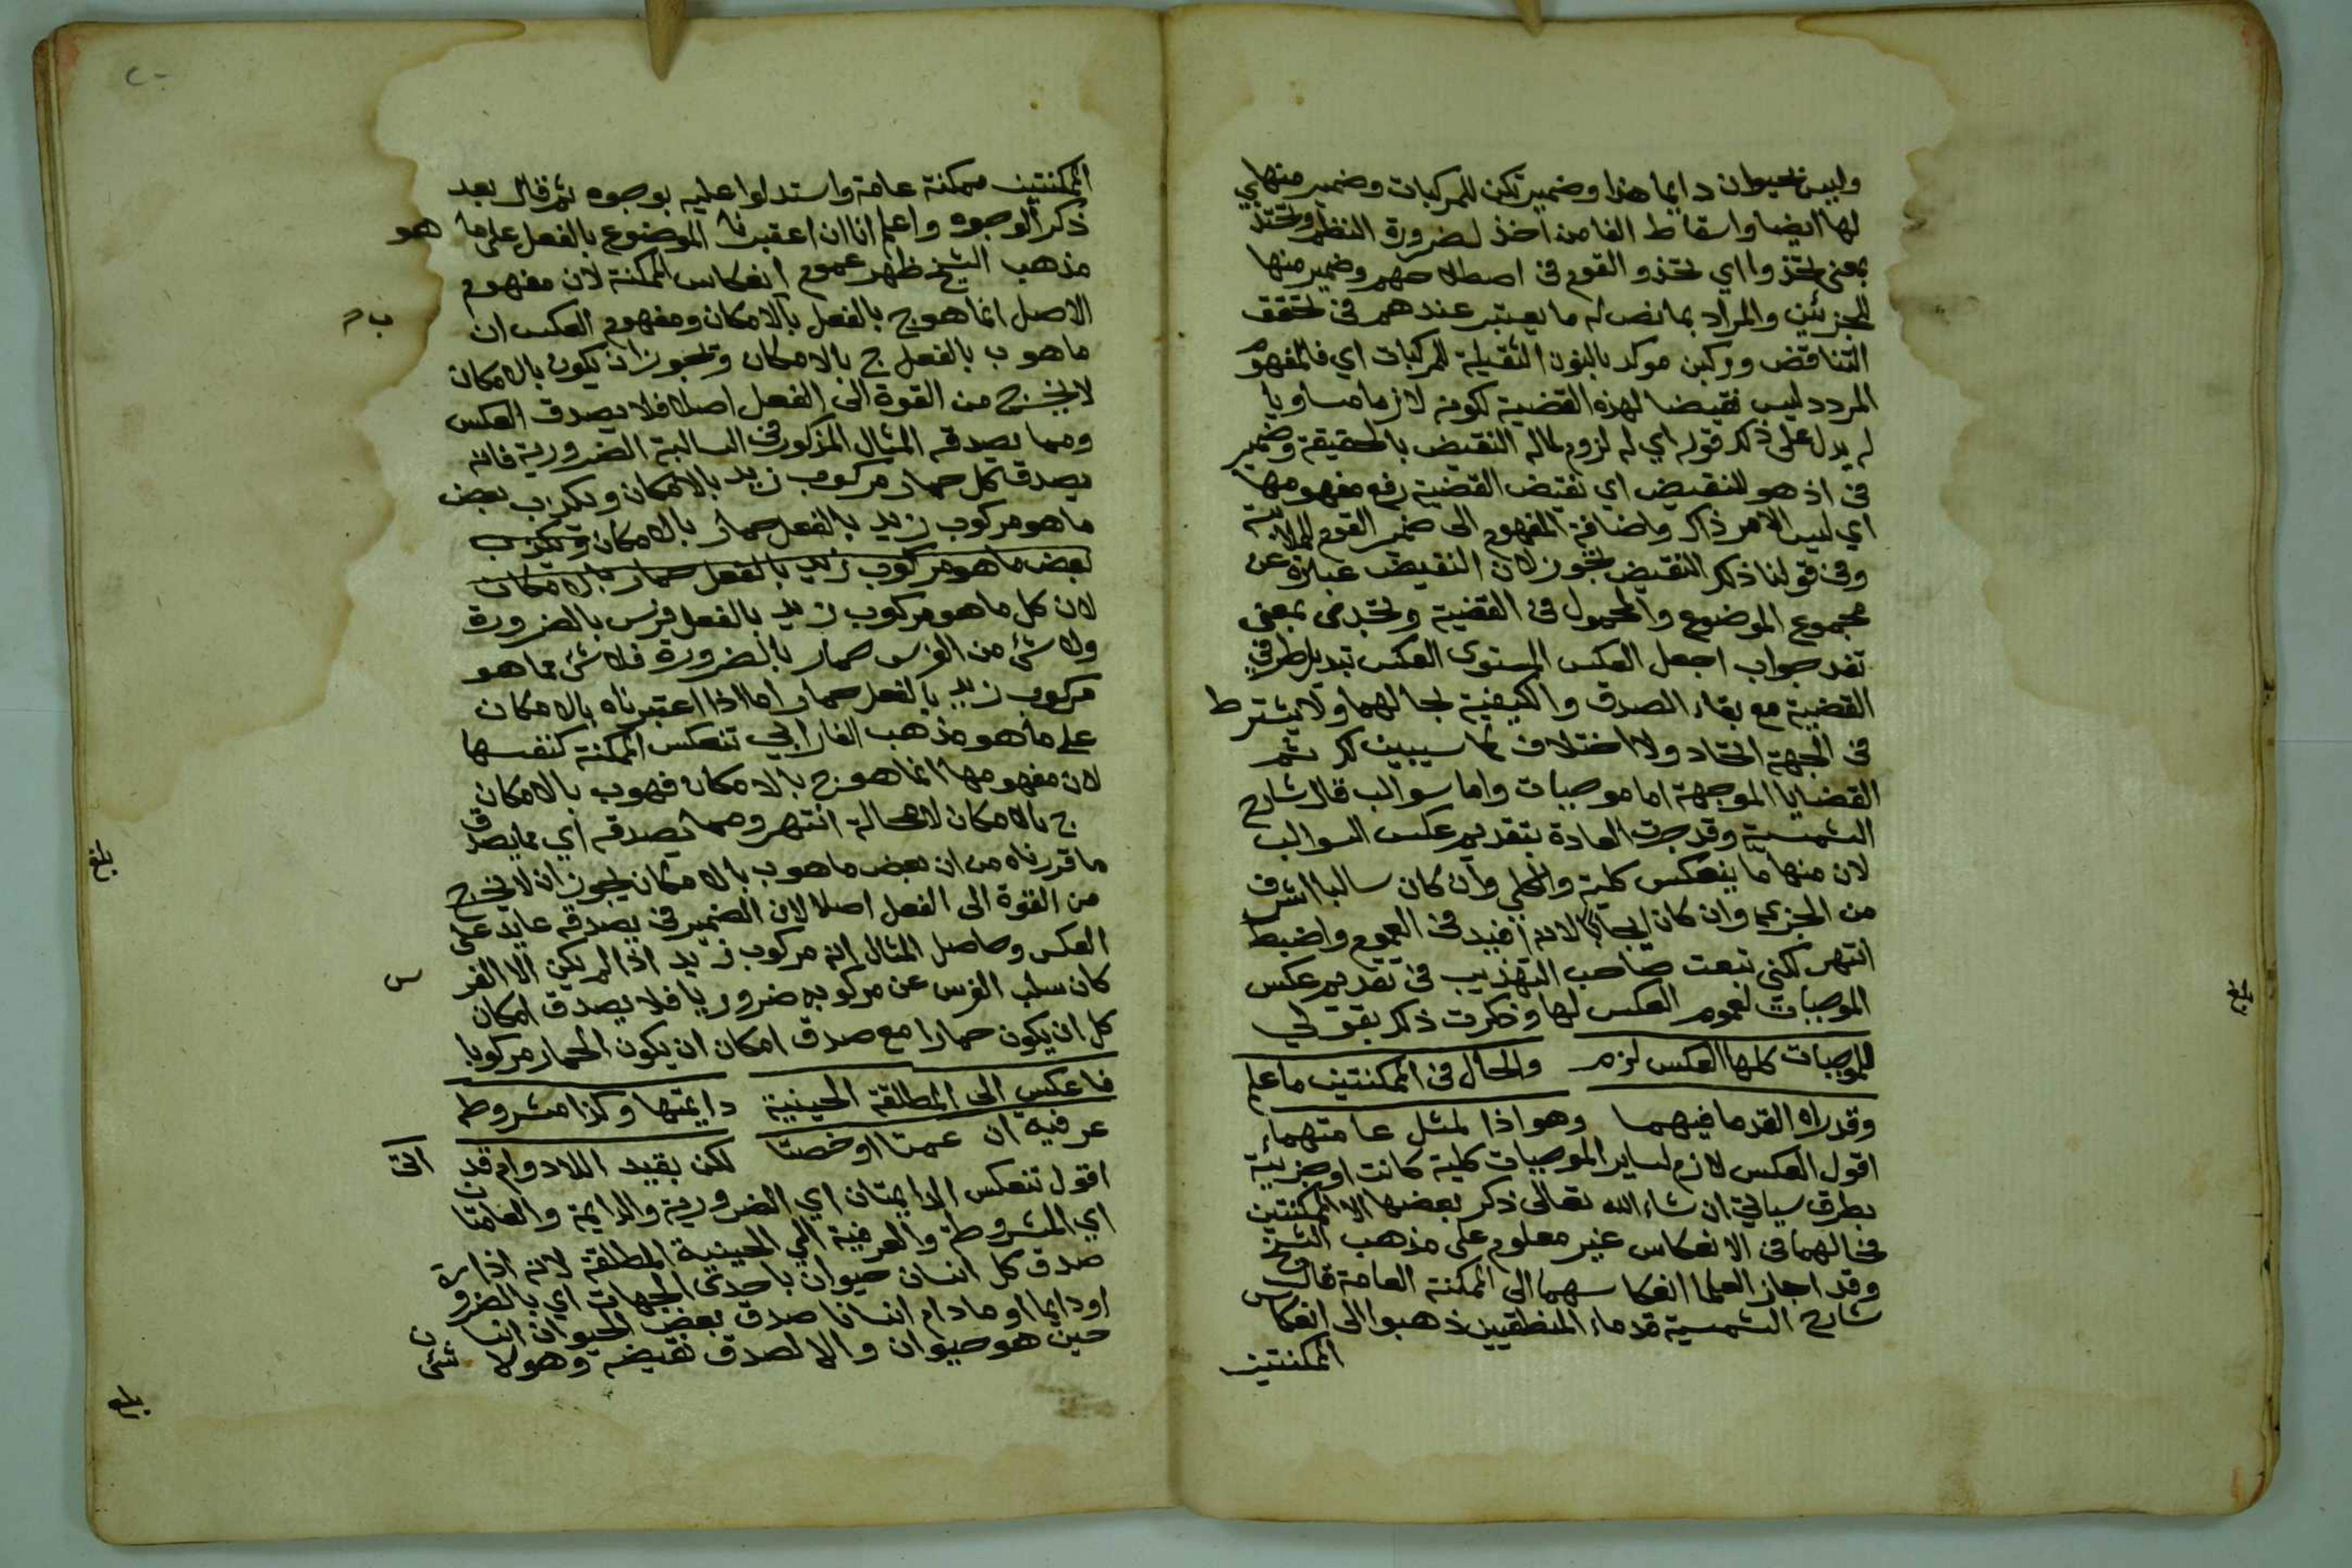 وليس بحيوان دايما هذا وضمير تكن للمركبات وضمير منها اي
لها ايضا واسقاط الفا من اخذ لضرورة النظم وتحتذ
بمعنى تحتذوا اي تحتذو القوم في اصطلاحهم وضمير منها
للجزئين والمراد بما نص له ما يعتبر عندهم في تحقق
التناقض وركبن موكد بالنون الثقيلة للمركبات اي فالمفهوم
المردد ليس نقيضا لهذه القضية لكونه لازما مساويا
له يدل على ذلك قوله اي له لزوم لما له النقيض بالحقيقة وضمير
في اذ هو للنقيض اي نقيض القضية رفع مفهومها
اي ليس الامر ذاك واضافة المفهوم الى ضمير القوم للملابسة
وفي قولنا ذلك النقيض تجوز لان النقيض عبارة عن
مجموع الموضوع والمحمول في القضية وتجدى بمعنى
تفد جواب اجعل العكس المستوى العكس تبديل طرفي
القضية مع بقاء الصدق والكيفية بحالهما ولا يشترط
في الجهة اتحاد ولا اختلاف كما سيبين لك ثم
القضايا الموجهة اما موجبات واما سوالب قال شارح
الشمسية وقد جرت العادة بتقديم عكس السوالب
لان منها ما ينعكس كلية والكلى وان كان سالبا اشرف
من الجزيى وان كان ايجابا لانه افيد في العموم واضبط
انتهر لكني تبعت صاحب التهذيب في تقديم عكس
الموجبات لعموم العكس لها وذكرت ذلك بقولي
للموجبات كلها العكس لزم والحال في الممكنتين ما علم
وقد راه القدما فيهما وهو اذا لمثل عامتهما
اقول العكس لازم لساير الموجبات كلية كانت او جزيية
بطرق سياتي ان شاء الله تعالى ذكر بعضها الا الممكنتين
فحالهما في الانعكاس غير معلوم على مذهب الشيخ
وقد اجاز العلما انعكاسهما الى الممكنة العامة قال
شارح الشمسية قدماء المنطقيين ذهبوا الى انعكاس
الممكنتين
الممكنتين ممكنة عامة واستدلوا عليه بوجوه ثم قال بعد
ذكر الوجوه واعلم انا ان اعتبرنا الموضوع بالفعل على ما هو
مذهب الشيخ ظهر عموم انعكاس الممكنة لان مفهوم
الاصل انما هو ج بالفعل ب بالامكان ومفهوم العكس ان
ما هو ب بالفعل ج بالامكان وتجوز ان يكون بالامكان
لا يخرج من القوة الى الفعل اصلا فلا يصدق العكس
ومما يصدقه المثال المذكور في السالبة الضرورية فانه
يصدق كل حمار مركوب زيد بالامكان ويكذب بعض
ما هو مركوب زيد بالفعل حمار بالامكان ويكذب
بعض ما هو مركوب زيد بالفعل حمار بالامكان
لان كل ما هو مركوب زيد بالفعل فرس بالضرورة
ولا شئ من الفرس حمار بالضرورة فلا شئ مما هو
مركوب زيد بالفعل حمار اما اذا اعتبرناه بالامكان
على ما هو مذهب الفارابي تنعكس الممكنة كنفسها
لان مفهومها انما هو ج بالامكان فهو ب بالامكان
ج بالامكان لا محالة انتهر ومما يصدقه اي مما يصدق
ما قررناه من ان بعض ما هو ب بالامكان يجوز ان لا يخرج
من القوة الى الفعل اصلا لان الضمير في يصدقه عايد على
العكس وحاصل المثال انه مركوب زيد اذا لم يكن الا الفرس
كان سلب الفرس عن مركوبه ضروريا فلا يصدق امكان
كل ان يكون حمارا مع صدق امكان ان يكون الحمار مركوبا
فاعكس الى المطلقة الحينية دايمتها وكذا مشروطه
عرفيه ان عمتا او خصتا لكن بقيد اللادوام قد اتى
اقول تنعكس الدايمتان اي الضرورية والدايمة والعامتان
اي المشروطة والعرفية الى الحينية المطلقة لانه اذا
صدق كل انسان حيوان باحدى الجهات اي بالضرورة
او دايما او ما دام انسانا صدق بعض الحيوان انسان
حين هو حيوان والا لصدق نقيضه وهو لا شئ
بلغ
بلغ
بلغ